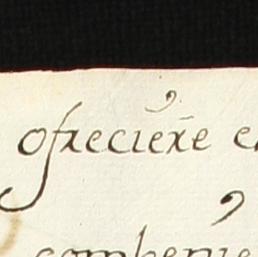 ofreciere e
combenie